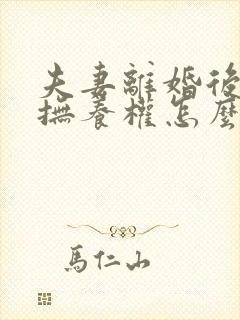 夫妻離婚後
撫養權怎麼
馬仁山